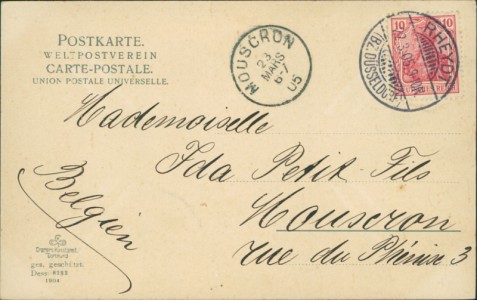 POSTKARTE.
WELTPOSTVEREIN
CARTE-POSTALE.
UNION POSTALE UNIVERSELLE.
MOUSCRON
23
MARS
6-7
05
10 10
RHEYDT
(BZ. DÜSSELDORF)
Mademoiselle
Ida Petit-Fils
Mouscron
rue du Phénix 3
Belgien
ges. geschützt.
Dess: